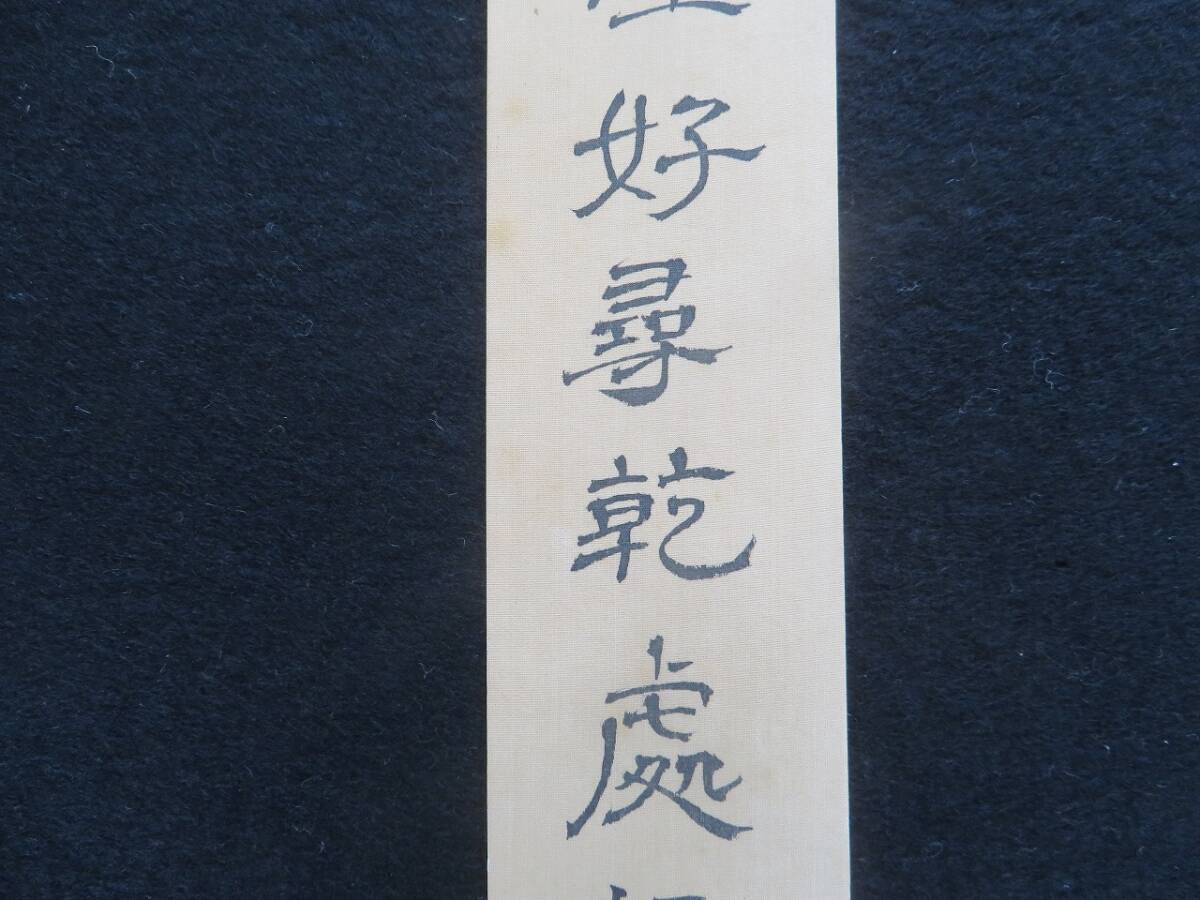 好尋乾處